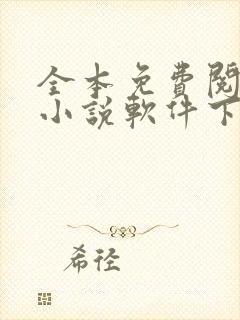 全本免費閱
小說軟件下
希徑